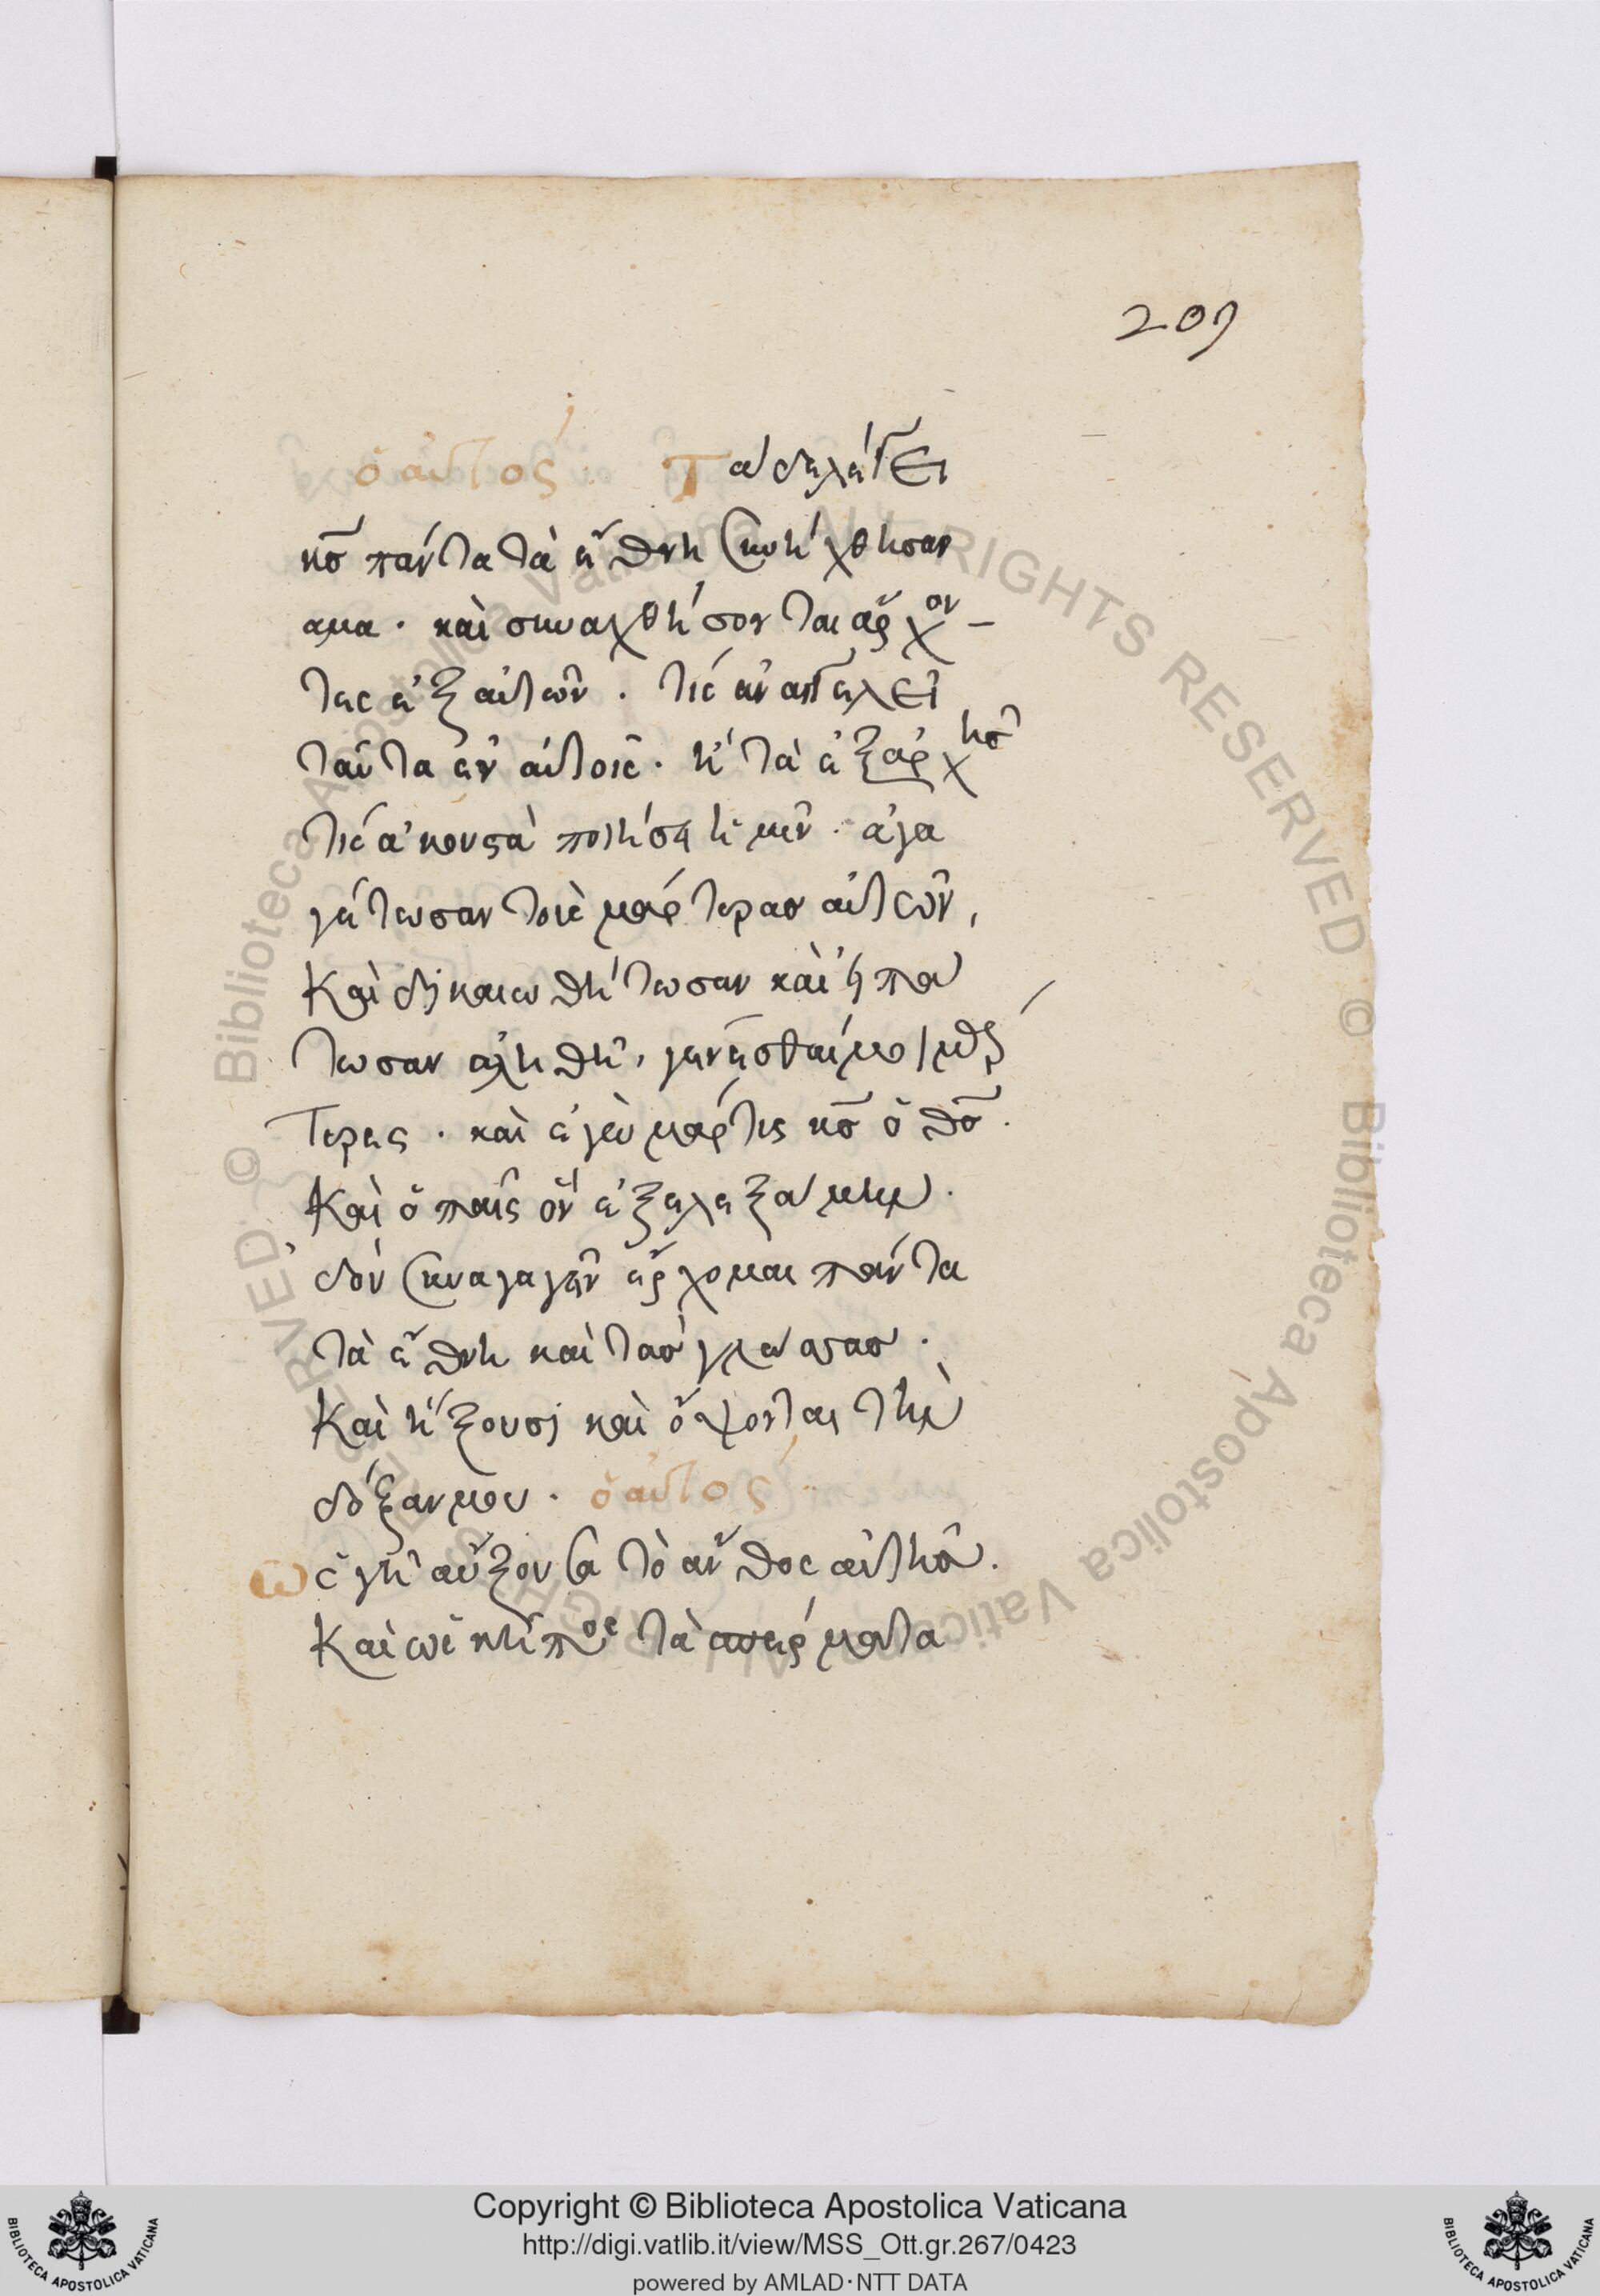 209
ὁ αὐτὸς. Τάδε λέγει
κς̅ πάντα τὰ ἔθνη συνήχθησαν
αμα· καὶ συναχθήσονται ἄρχον-
τες ἐξ αὐτῶν. τίς ἀναγγελεῖ
ταῦτα ἐν αὐτοῖς· ἢ τὰ ἐξαρχῆς
τίς ἀκουστὰ ποιήσει ἡμῖν· ἀγα
γέτωσαν τοὺς μάρτυρας αὐτῶν,
Καὶ δικαιωθήτωσαν καὶ εἰπά
τωσαν ἀληθῆ, γένεσθαί μοι μάρ
τυρες· καὶ ἐγὼ μάρτυς κς̅ ὁ θς̅.
Καὶ ὁ παῖς ὃν ἐξελεξάμην.
συναγαγεῖν ἔρχομαι πάντα
τὰ ἔθνη καὶ τὰς γλώσσας.
Καὶ ἥξουσι καὶ ὄψονται τὴν
δόξαν μου. ὁ αὐτὸς
ὡς γῆ αὔξουσα τὸ ἄνθος αὐτῆς.
Καὶ ὡς κῆπος τὰ σπέρματα
Copyright © Biblioteca Apostolica Vaticana
http://digi.vatlib.it/view/MSS_Ott.gr.267/0423
powered by AMLAD·NTT DATA